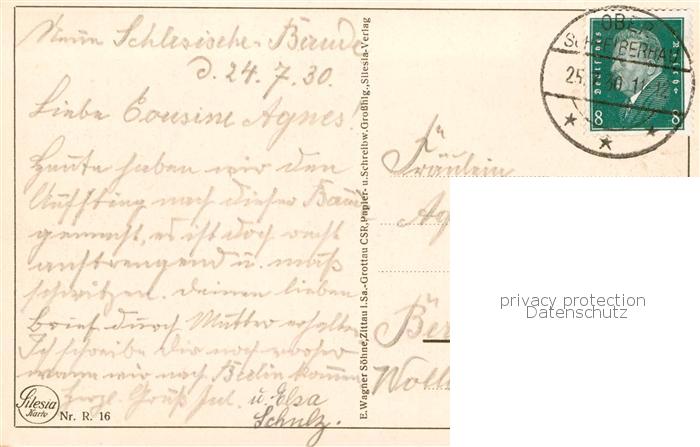 Neue Schlesische-Baude
d. 24.7.30.
Liebe Cousine Agnes!
Heute haben wir den
Aufstieg nach dieser Baude
gemacht, es ist doch recht
anstrengend u. muß
schwitzen. Deinen lieben
Brief durch Mutter erhalten
Ich schreibe dir noch vorher
wann wir nach Berlin kommen
Herzl. Gruß Jul. u. Elsa
Schulz.
Silesia
Karte
Nr. R. 16
E. Wagner Söhne, Zittau i. Sa.-Grottau CSR, Papier- u. Schreibw. Großhlg., Silesia-Verlag
OBER
SCHREIBERHAU
25.
30. 11
Deutsches Reich
8 8
Fräulein
Ag
Ber
Woll
privacy protection
Datenschutz